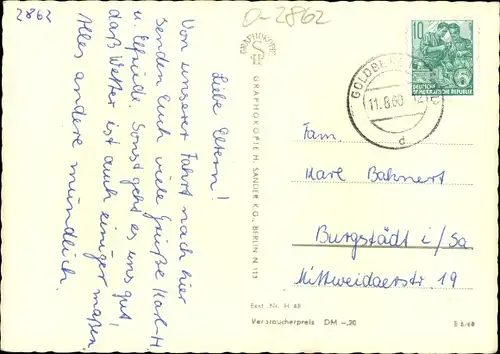 2862
O-2862
Liebe Eltern!
Von unserer Fahrt nach hier
senden Euch viele Grüße Karl-H.
u. Elfriede. Sonst geht es uns gut!
daß Wetter ist auch einiger maßen.
Alles andere mündlich.
GRAPHOKOPIE
GRAPHOKOPIE H. SANDER K.G., BERLIN N 113
10
DEUTSCHE
DEMOKRATISCHE REPUBLIK
GOLDBERG
11.8.60
d
Fam.
Karl Bahnert
Burgstädt i/Sa
Mittweidaerstr. 19
Best. Nr. H 48
Verbraucherpreis DM -,20